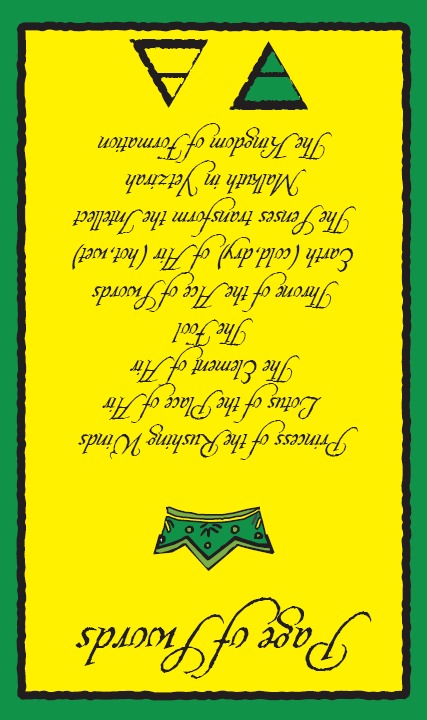 Page of Swords
Princess of the Rushing Winds
Lotus of the Place of Air
The Element of Air
The Fool
Throne of the Ace of Swords
Earth (cold,dry) of Air (hot,wet)
The Senses transform the Intellect
Malkuth in Yetzirah
The Kingdom of Formation